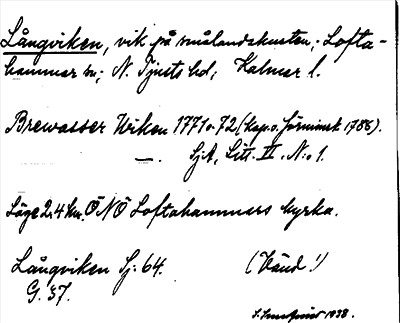 Långviken, vik på smålandskusten; Lofta-
hammar sn; N. Tjusts hd; Kalmar l.
Brewasser Wiken 1771 o. 72 (kap. o. förminsk 1786).
—.— Sjk, Litt. VI, N:o 1.
Läge 2.4 km. ÖNÖ Loftahammars kyrka.
Långviken Sj: 64. (Vänd!)
G. 37.
1938.